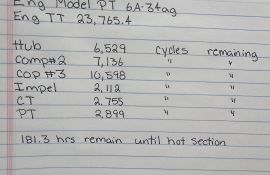 Eng Model PT 6A-34ag
Eng TT 23,765.4
Hub 6,529 cycles remaining
Comp#2 7,136 " "
Cop #3 10,598 " "
Impel 2,112 " "
CT 2,755 " "
PT 2,899 " "
181.3 hrs remain until hot section